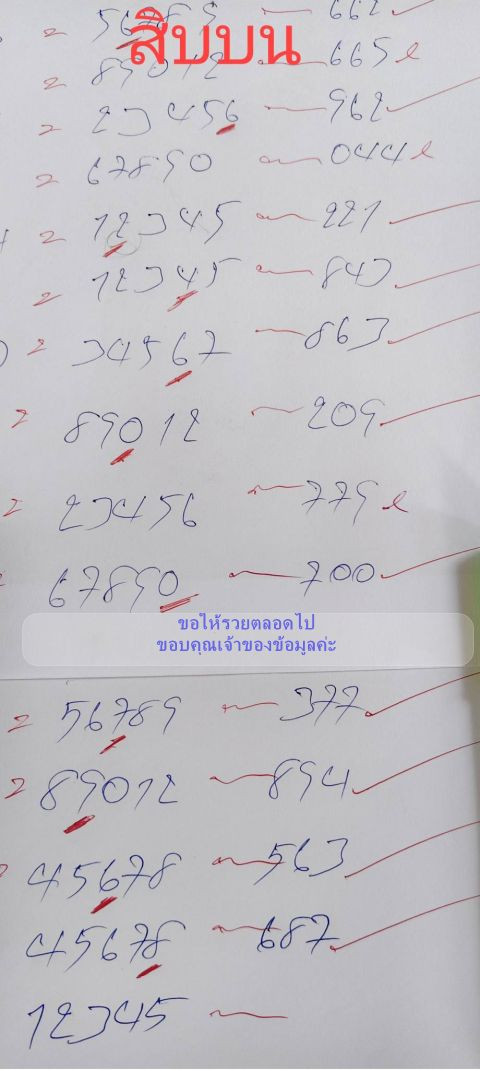 2 56789 — 662
สิบบน
2 89012 — 665 ✗
2 23456 — 962 ✓
2 67890 — 044 ✗
2 12345 — 221 ✓
2 12345 — 843 ✓
2 34567 — 863 ✓
2 89012 — 209 ✓
2 23456 — 779 ✗
67890 — 700 ✓
ขอให้รวยตลอดไป
ขอบคุณเจ้าของข้อมูลค่ะ
2 56789 — 377 ✓
2 89012 — 894 ✓
45678 — 563 ✓
45678 — 687 ✓
12345 —